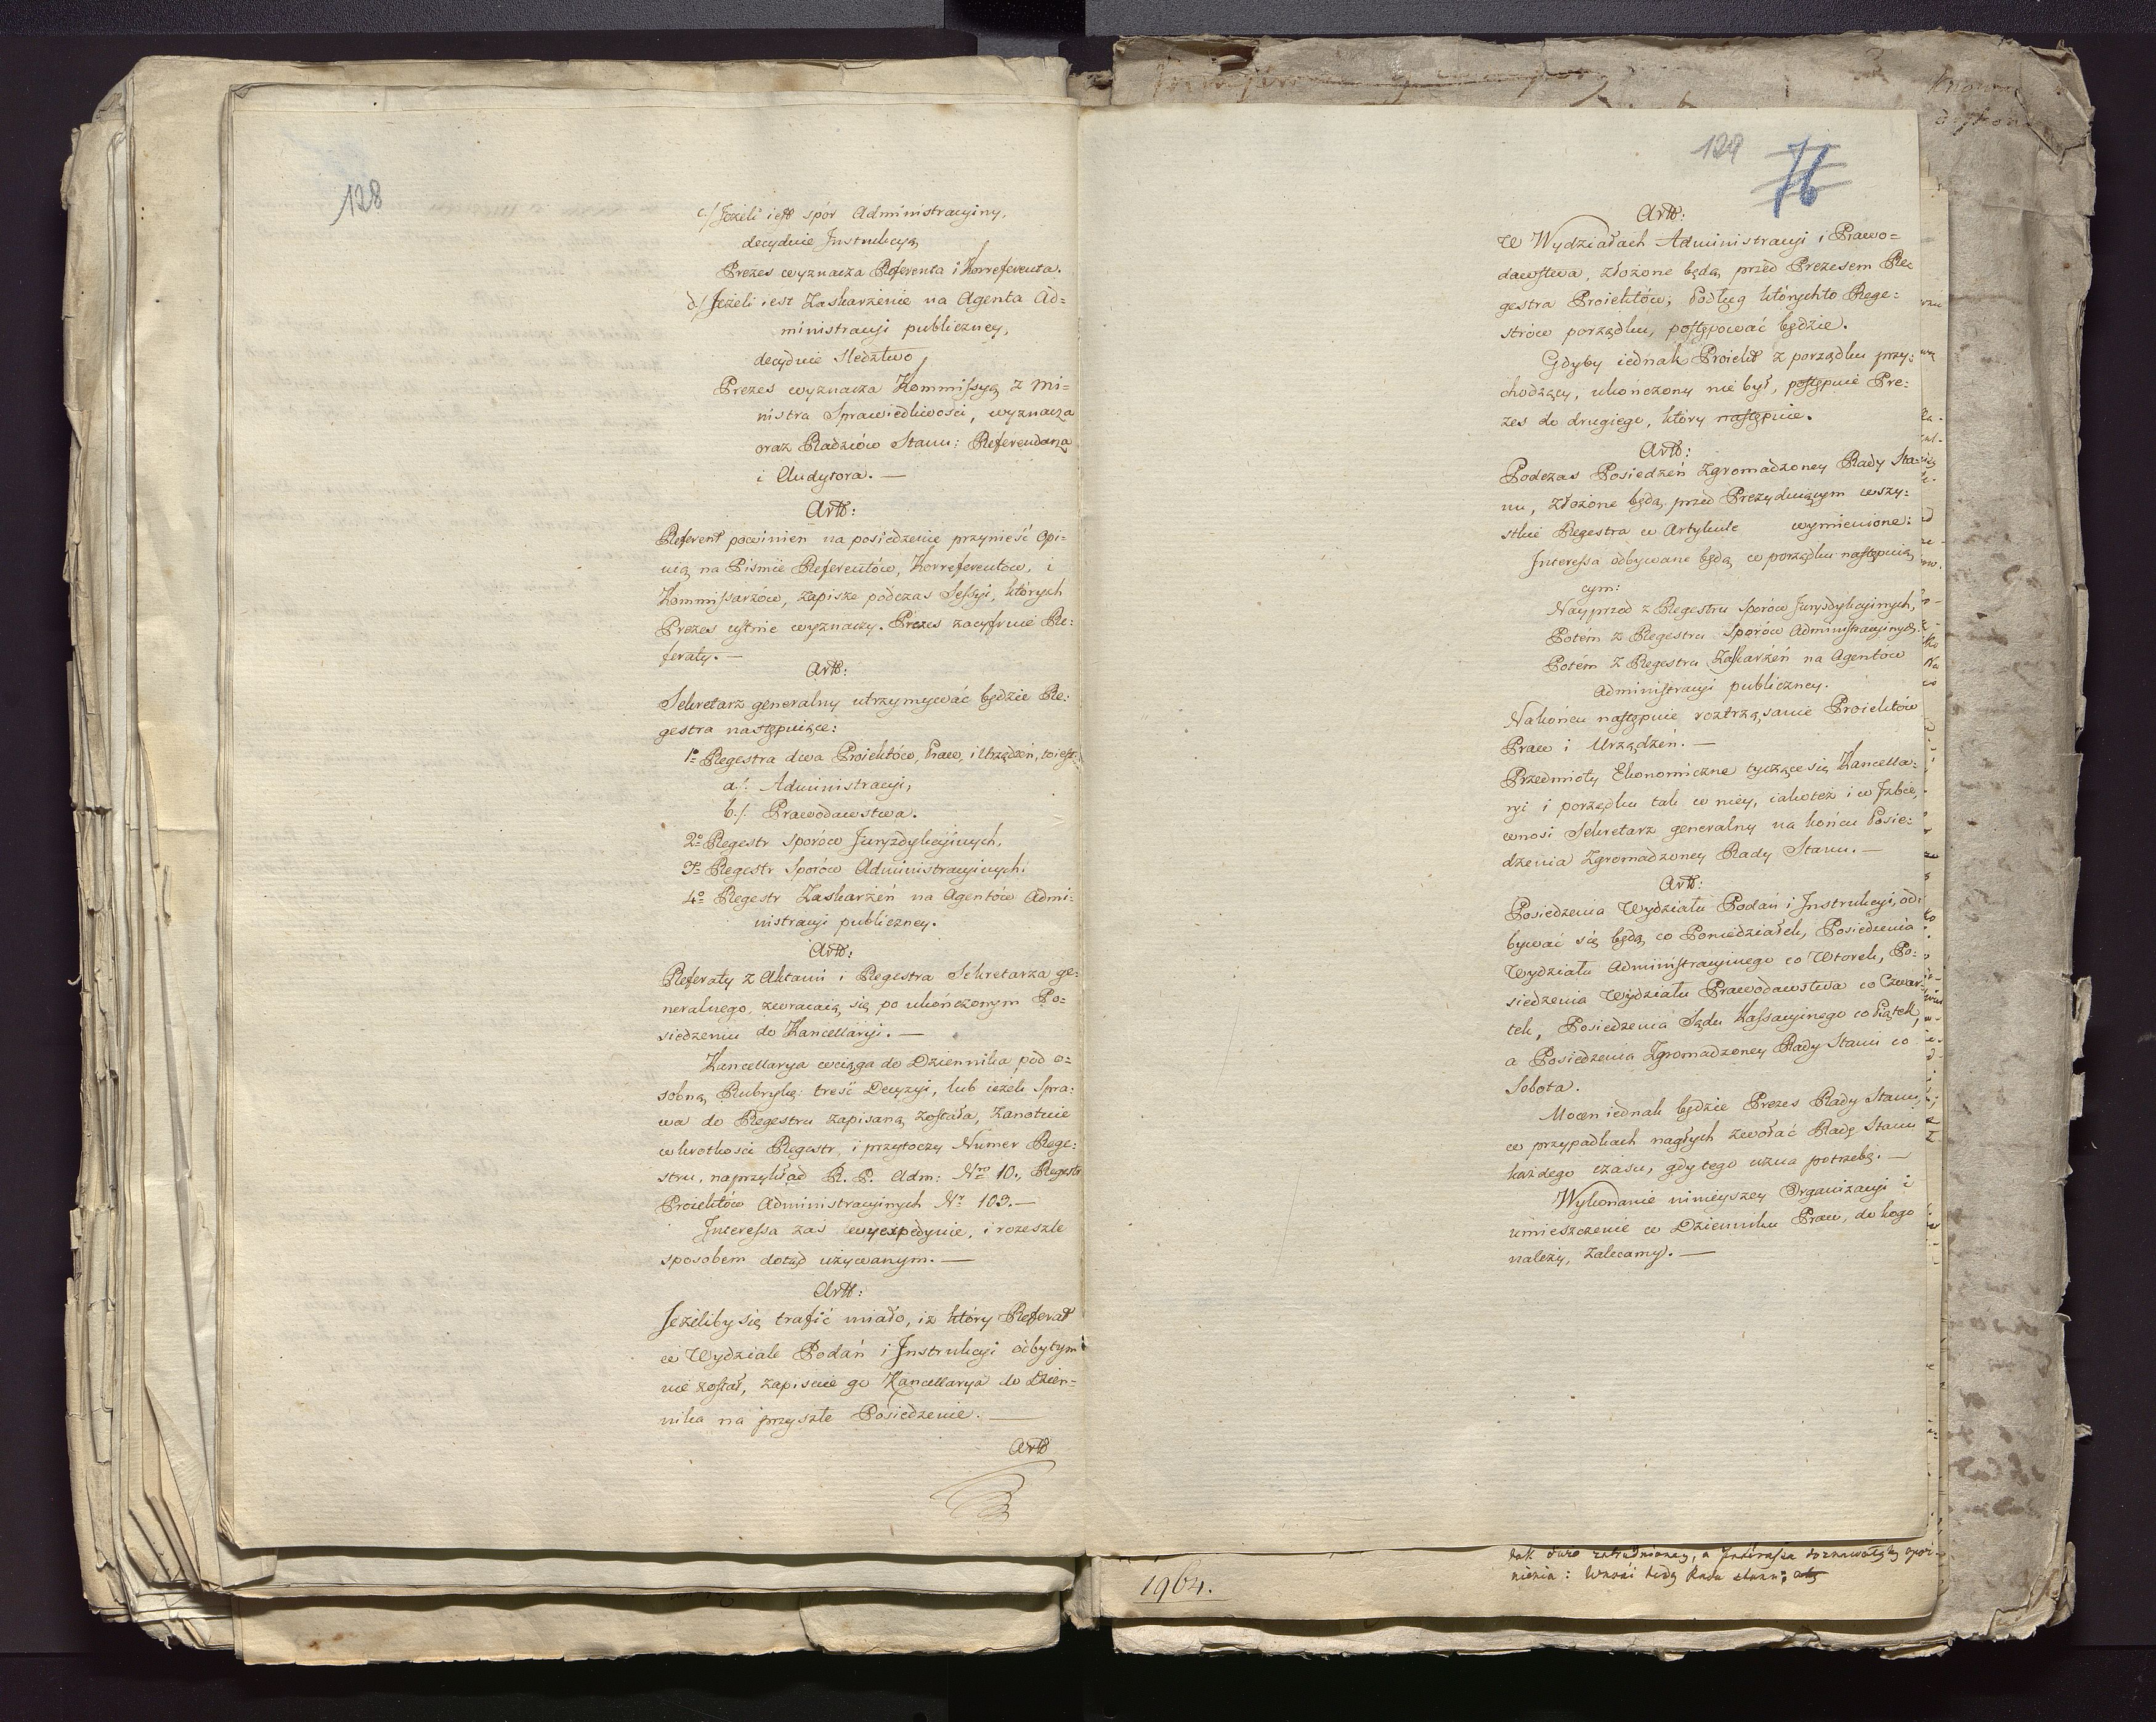 128
c./ Jeżeli iest spór Administracyiny,
decyduie Instrukcyą
Prezes wyznacza Referenta i Korreferenta.
d./ Jeżeli iest Zaskarżenie na Agenta Ad=
ministracyi publiczney,
decyduie Sledztwo
Prezes wyznacza Kommissyą z Mi=
nistra Sprawiedliwości, wyznacza
oraz Radzców Stanu: Referendarza
i Audytora. —
Artt:
Referent powinien na posiedzenie przynieść Opi=
nią na Pismie Referentów, Korreferentów, i
Kommissarzów, zapisze podczas Sessyi, których
Prezes ustnie wyznaczy. Prezes zacyfruie Re:
feraty. —
Artt:
Sekretarz generalny utrzymywać będzie Re:
gestra następuiące:
1º Regestra dwa Proiektów, Praw, i Urządzeń, to iest:
a./: Administracyi,
b./: Prawodawstwa.
2º Regestr Sporów Juryzdykcyinych,
3º Regestr Sporów Administracyinych.
4º Regestr Zaskarżeń na Agentów Admi:
nistracyi publiczney.
Artt:
Referaty z Aktami i Regestra Sekretarza ge:
neralnego, zwracaią się po ukończonym Po=
siedzeniu do Kancellaryi. —
Kancellarya wciąga do Dziennika pod o=
sobną Rubrykę: treść Decyzyi, lub ieżeli Spra:
wa do Regestru zapisaną została, zanotuie
w krotkości Regestr, i przytoczy Numer Rege:
stru, naprzykład R. P. Adm: Nro 10., Regestr
Proiektów Administracyinych Nr 103. —
Interessa zas wyexpedyuie, i rozeszle
sposobem dotąd używanym. —
Artt:
Jeżeliby się trafić miało, iż który Referat
w Wydziale Podań i Instrukcyi odbytym
nie został, zapisuie go Kancellarya do Dzien=
nika na przyszłe Posiedzenie. —
Artt
129
76
Artt:
W Wydziałach Administracyi i Prawo=
dawstwa, złożone będą przed Prezesem Re
gestra Proiektów; Podług którychto Rege:
strów porządku, postępować będzie.
Gdyby iednak Proiekt z porządku przy:
chodzący, ukończony nie był, postępuie Pre:
zes do drugiego, który następuie.
Artt:
Podczas Posiedzeń Zgromadzoney Rady Sta=
nu, złożone będą przed Prezyduiącym wszy:
stkie Regestra w Artykule wymienione:
Interessa odbywane będą w porządku następuią
cym:
Nayprzod z Regestru Sporów Juryzdykcyinych,
Potém z Regestru Sporów Administracyinych.
Potém z Regestru Zaskarżeń na Agentów
Administracyi publiczney.
Nakońcu następuie roztrząsanie Proiektów
Praw i Urządzeń. —
Przedmioty Ekonomiczne tyczące się Kancella:
ryi i porządku tak w niey, iakoteż i w Izbie,
wnosi Sekretarz generalny na końcu Posie:
dzenia Zgromadzoney Rady Stanu. —
Artt:
Posiedzenia Wydziału Podań i Instrukcyi, od:
bywać się będą co Poniedziałek, Posiedzenia
Wydziału Administracyinego co Wtorek, Po:
siedzenia Wydziału Prawodawstwa co Czwar=
tek, Posiedzenia Sądu Kassacyinego co Piątek,
a Posiedzenia Zgromadzoney Rady Stanu co
Sobota.
Mocen iednak będzie Prezes Rady Stanu,
w przypadkach nagłych zwołać Radę Stanu
każdego czasu, gdy tego uzna potrzebę. —
Wykonanie ninieyszey Organizacyi i
umieszczenie w Dzienniku Praw, do kogo
należy, zalecamy. —
1964.
tak dużo zatrudnioney, a Interessa doznawałyby opóź-
nienia: Wnosi tedy Rada stanu; aby